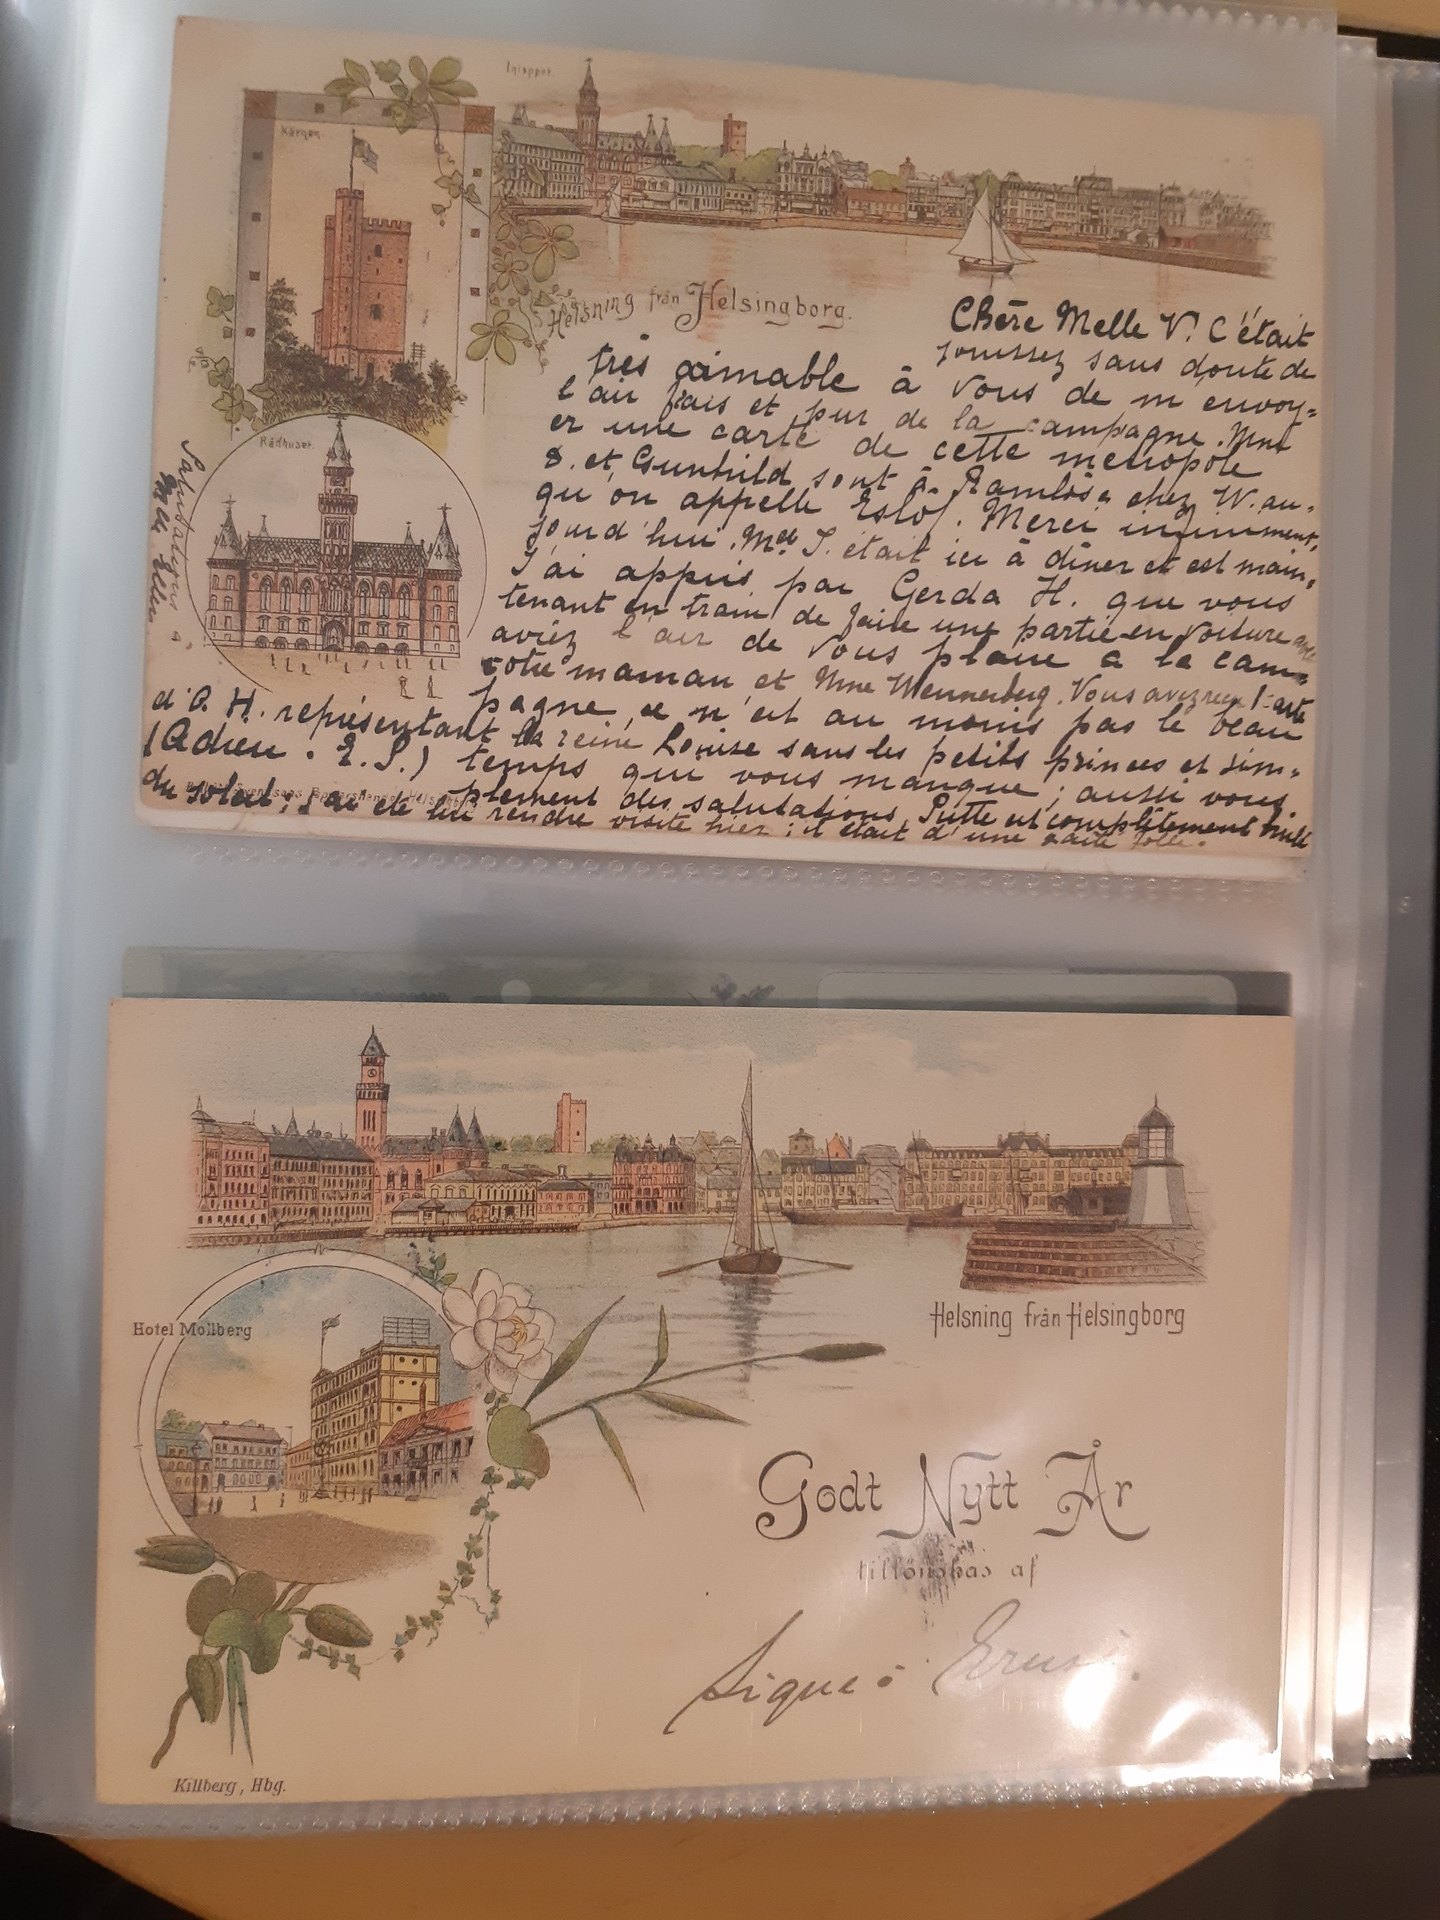 Inloppet
Kärnan
Helsning från Helsingborg.
Rådhuset
Chère Melle V. C'était
jouissez sans doute de
très aimable à vous de m'envoy=
l'air frais et pur de la campagne. Mme
er une carte de cette metropole
S. et Gunhild sont à Ramlösa chez W. au=
qu'on appelle Eslöf. Merci infiniment.
jourd'hui. Md S. était ici à dîner et est main=
J'ai appris par Gerda H. que vous
tenant en train de faire une partie en voiture avec
aviez l'air de vous plaire à la cam=
votre maman et Mme Wennerberg. Vous avez reçu 1 carte
pagne, ce n'est au moins pas le beau
d'O. H. représentant la reine Louise sans les petits princes et sim=
(Adieu. E. S.) temps qui vous manque; aussi vous
plement des salutations. Putte est complètement
du soleil; J'ai été lui rendre visite hier; il était d'une gaité folle.
Salutations à
Melle Ellen
Hotel Mollberg
Helsning från Helsingborg
Godt Nytt År
tillönskas af
Signe o
Killberg, Hbg.